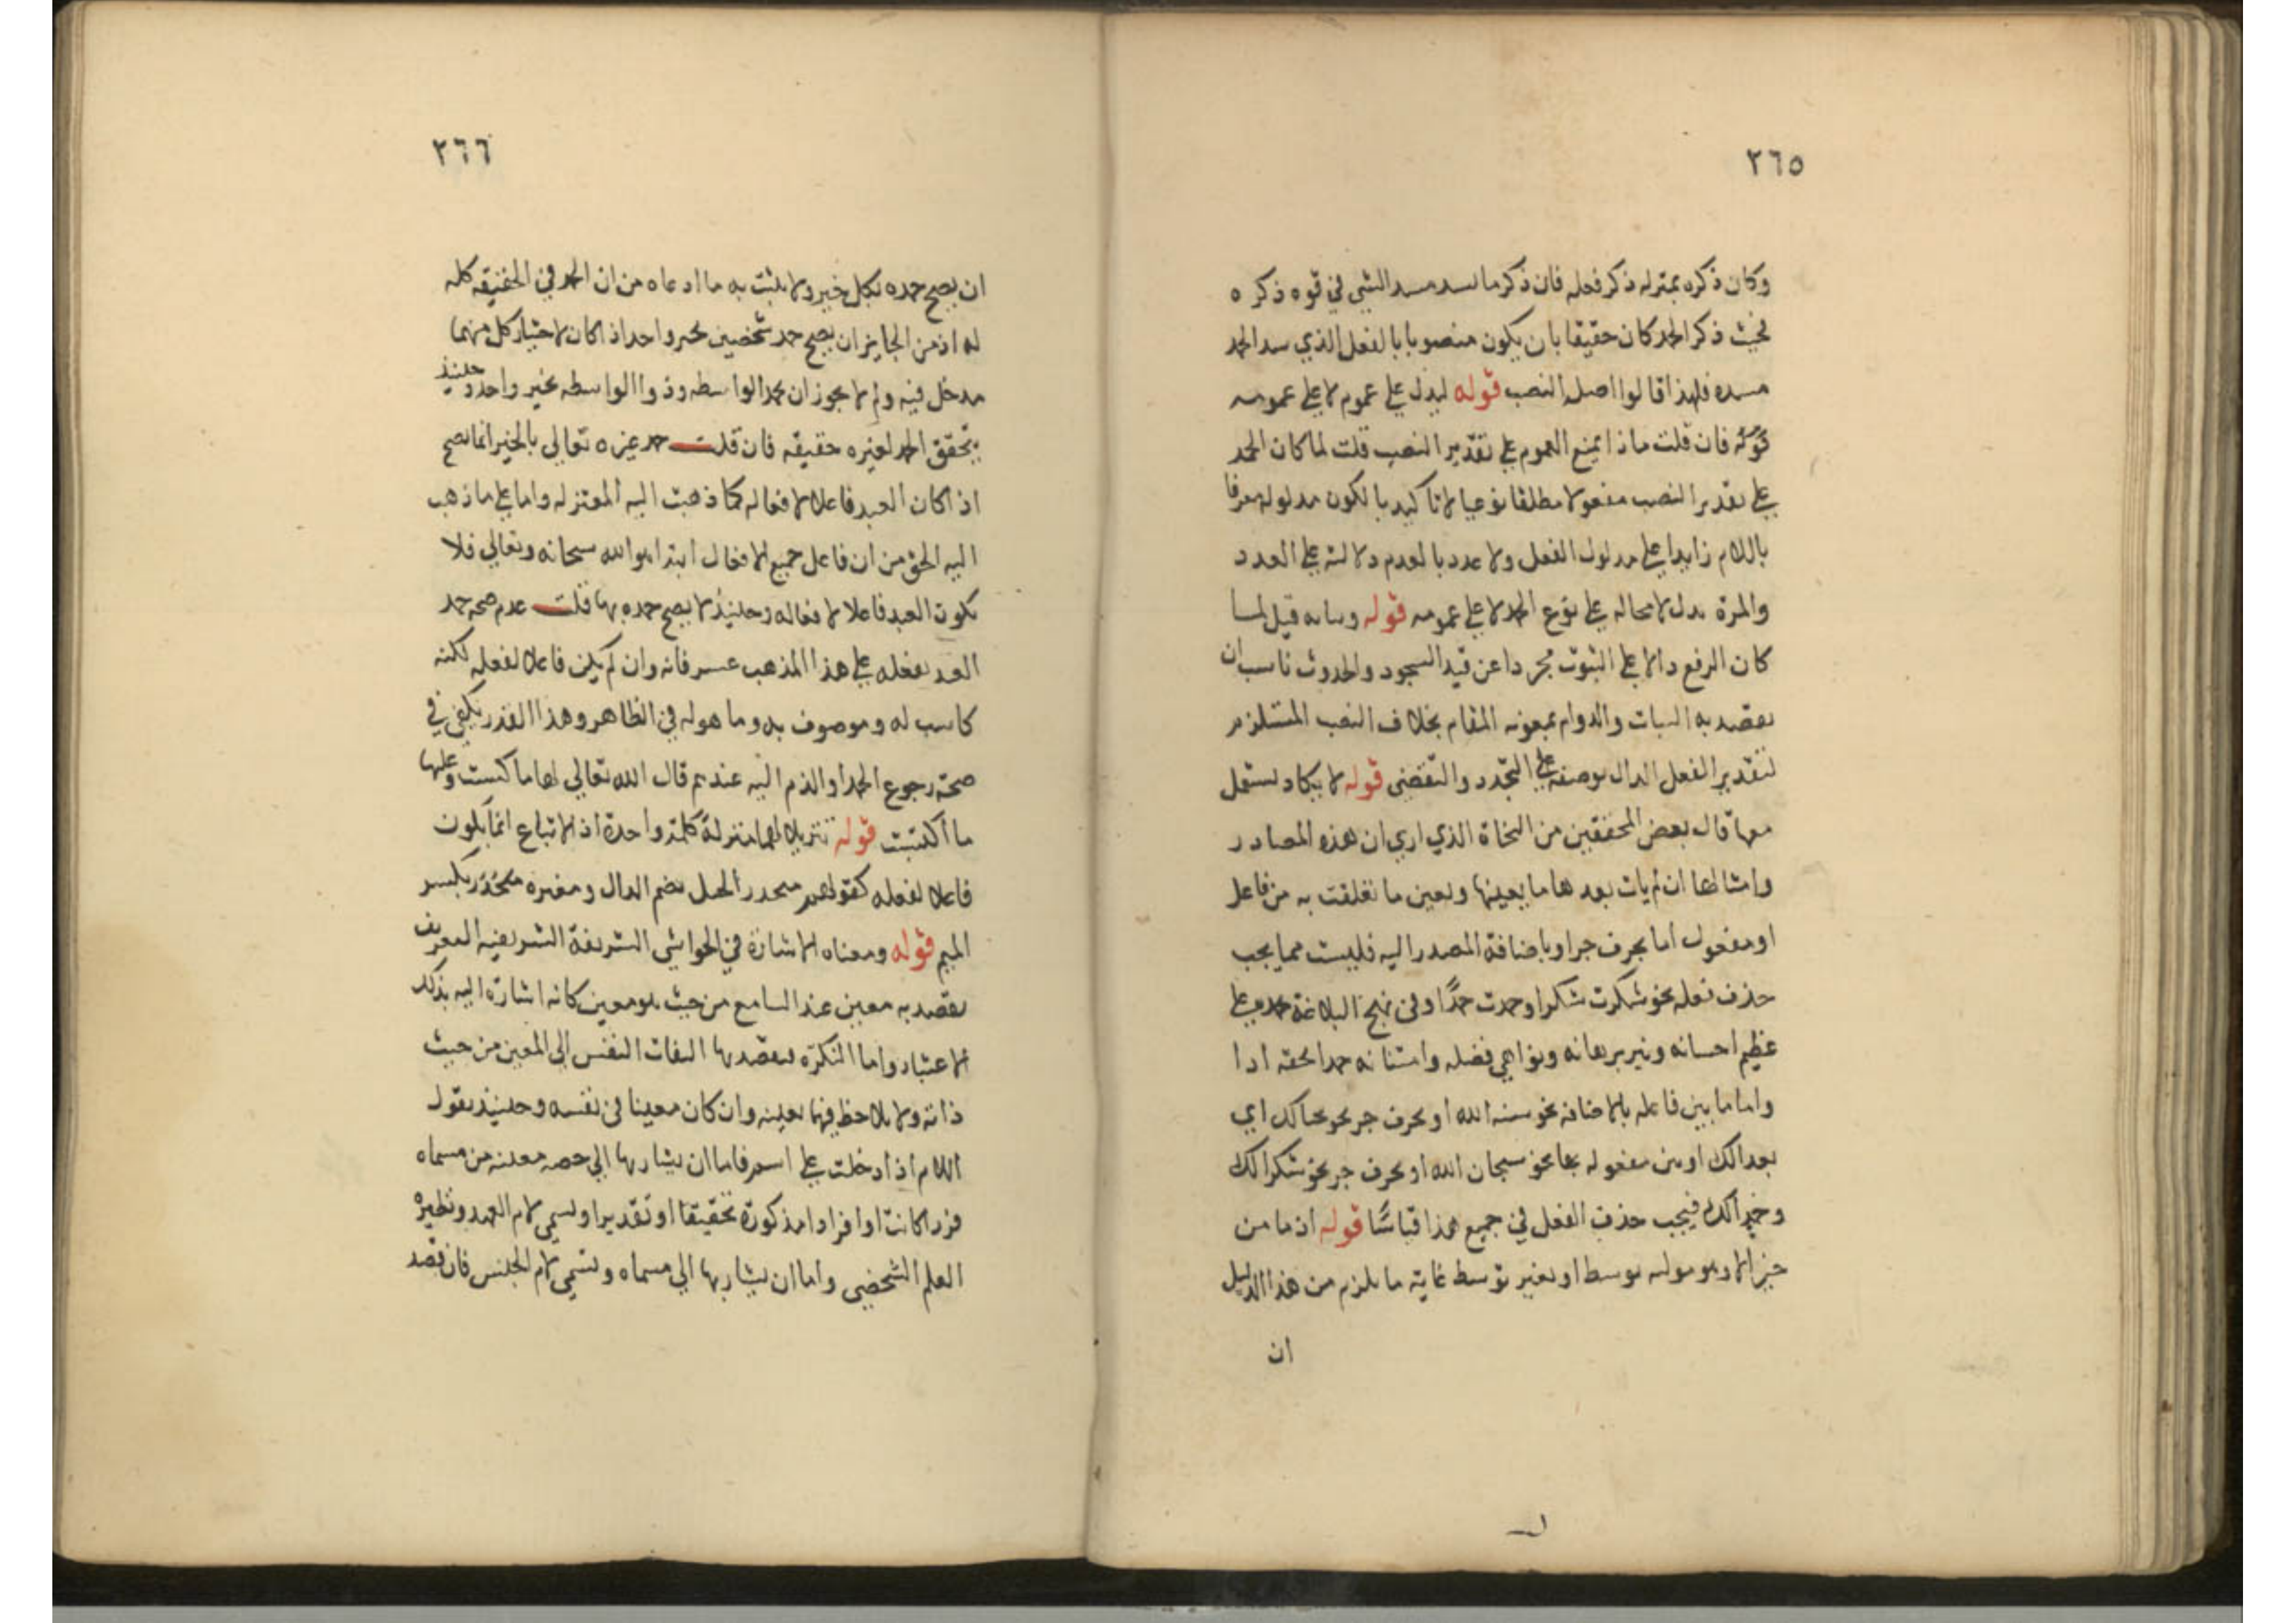 ٢٦٥
وكان ذكره بمنزله ذكر فعله فان ذكر ما يسد مسد الشي في قوه ذكره
فحيث ذكر الحمد كان حقيقا بان يكون منصوبا بالفعل الذي سد الحمد
مسده فلهذا قالوا اصله النصب قوله ليدل علي عموم لا علي عمومه
فان قلت ماذا يمنع العموم علي تقدير النصب قلت لما كان الحمد
علي تقدير النصب مفعولا مطلقا نوعيا لا تاكيديا لكون مدلوله معرفا
باللام زايدا علي مدلول الفعل ولا عدديا لعدم دلالته علي العدد
والمرة يدل لا محاله علي نوع الحمد لا علي عمومه قوله وثباته قيل لما
كان الرفع دالا علي الثبوت مجردا عن قيد والحدوث ناسب ان
يقصد به الثبات والدوام بمعونه المقام بخلاف النصب المستلزم
لتقدير الفعل الدال بوصفه علي التجدد والتقضي قوله لا يكاد يستعمل
معها قال بعض المحققين من النحاة الذي اري ان هذه المصادر
وامثالها ان لم يات بعدها ما يعينها ويعين ما تعلقت به من فاعل
او مفعول اما بحرف جر او باضافة المصدر اليه فليست مما يجب
حذف فعله نحو شكرت شكرا وحمدت حمدًا وفي نهج البلاغة نحمده علي
عظيم احسانه ونير برهانه ونوامي فضله وامتنانه حمدا لحقه ادا
واما ما بين فاعله بالاضافة نحو سنه الله او بحرف جر نحو اي
بعدا لك او بين مفعوله بها نحو سبحان الله او بحرف جر نحو شكرا لك
فيجب حذف الفعل في جميع هذا قياسًا قوله اذ ما من
خير الا وهو موليه بوسط او بغير توسط غاية ما يلزم من هذا الدليل
ان
٢٦٦
ان يصح حمده بكل خير ولا يثبت به ما ادعاه من ان الحمد في الحقيقه كله
له اذ من الجايز ان يصح حمد شخصين بخير واحد اذا كان لاختيار كل منهما
مدخل فيه ولم لا يجوز ان يحمد الواسطه وذو الواسطه بخير واحد وحينيذ
يتحقق الحمد لغيره حقيقه فان قلت حمد غيره تعالي بالخير انما يصح
اذا كان العبد فاعلا لافعاله كما ذهبت اليه المعتزله واما علي ما ذهب
اليه الحق من ان فاعل جميع الافعال ابتدا هو الله سبحانه وتعالي فلا
يكون العبد فاعلا لافعاله وحينيذ لا يصح حمده بها قلت عدم صحه حمد
العبد بفعله علي هذا المذهب عسر فانه وان لم يكن فاعلا لفعله لكنه
كاسب له وموصوف به وما هو له في الظاهر وهذا القدر يكفي في
صحة رجوع الحمد او الذم اليه عندهم قال الله تعالي لها ما كسبت وعليها
ما اكتسبت قوله تنزيلا لهما منزلة كلمة واحدة اذ الاتباع انما يكون
فاعلا لفعله كقولهم منحدر الجبل بضم الدال ومغيره بكسر
الميم قوله ومعناه الاشارة في الحواشي الشريفة الشريفيه المعرف
يقصد به معين عند السامع من حيث هو معين كانه اشارة اليه بذلك
الاعتبار واما النكره فيقصد بها التفات النفس الي المعين من حيث
ذاته ولا يلاحظ فيها تعينه وان كان معينا في نفسه وحينيذ نقول
اللام اذا دخلت علي اسم فاما ان يشار بها الي حصه معينه من مسماه
فردا كانت او افرادا مذكورة تحقيقا او تقديرا ويسمي لام العهد ونظيره
العلم الشخصي واما ان يشار بها الي مسماه وتسمي لام الجنس فان قصد